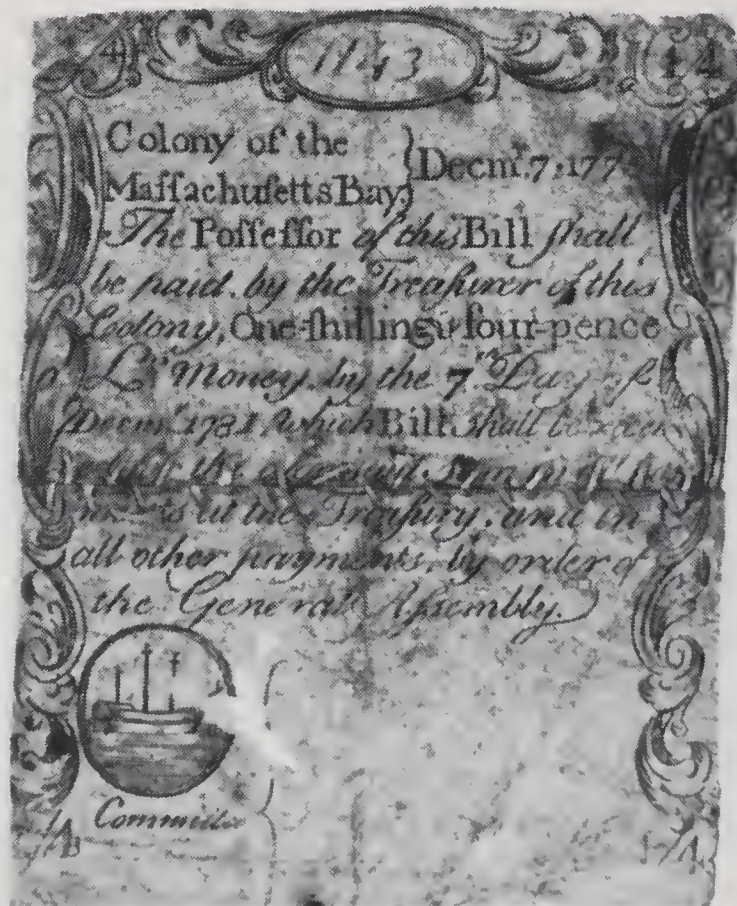 1143
Colony of the
Maſſachuſetts Bay.
Decmr. 7, 177
The Poſſeſſor of this Bill ſhall
be paid by the Treaſurer of this
Colony, One-ſhilling & four-pence
L. Money by the 7th Day of
Decmr. 1781, which Bill ſhall be
in all
at the Treaſury, and in
all other payments, by order of
the General Aſſembly.
Committee